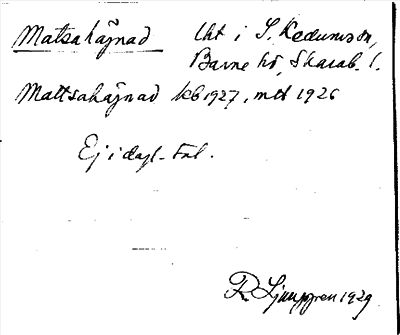 Matsahäjnad lht i S. Kedumssn,
Barne hd, Skarab. l.
Mattsahäjnad kb 1927, mtl 1926
Ej i dagl. tal.
R Ljunggren 1929